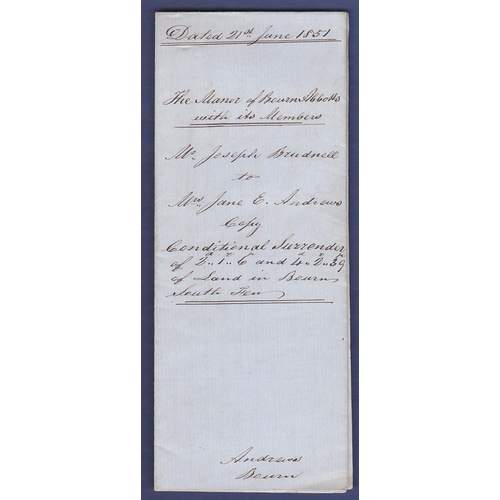 Dated 21st June 1851
The Manor of Bourn Abbotts
with its Members
Mr. Joseph Brudnell
to
Mrs. Jane E. Andrews
Copy
Conditional Surrender
of 2a.. 1r.. 6p and 4a.. 2r.. 39p
of Land in Bourn
South Fen
Andrews
Bourn